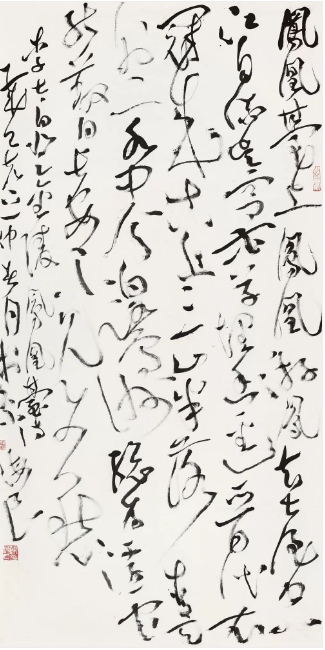 鳳凰臺上鳳凰遊鳳去臺空
江自流吳宮花草埋幽徑晉代衣
冠成古丘三山半落青天
外二水中分白鷺洲總為浮雲
能蔽日長安不見使人愁
李太白登金陵鳳凰臺詩
仲春月